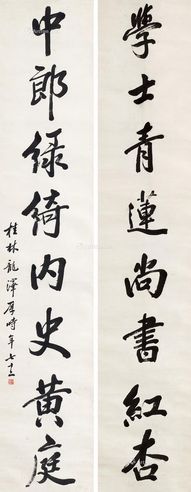 學士青蓮尚書紅杏
中郎綠綺內史黃庭
桂林龍澤厚時年七十二